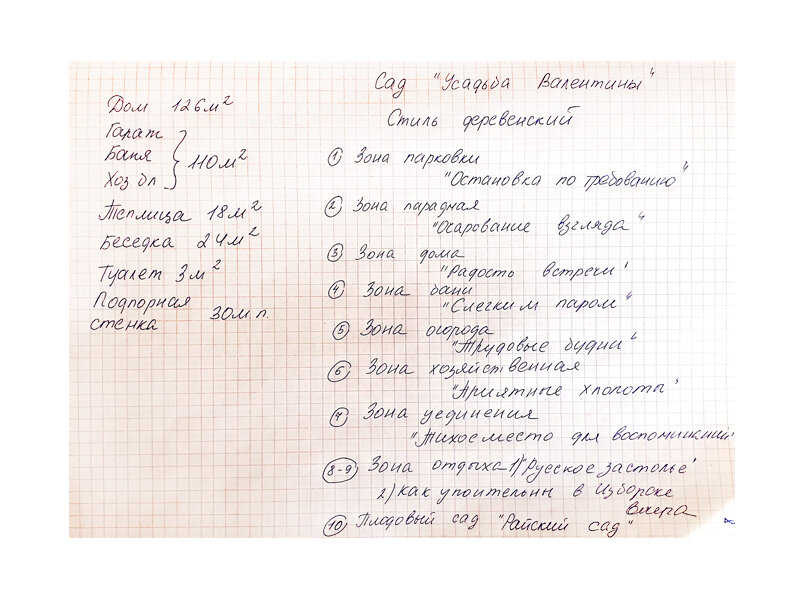 Дом 126м²
Гараж
Баня
Хоз бл
110м²
Теплица 18м²
Беседка 24м²
Туалет 3м²
Подпорная
стенка 30м.п.
Сад "Усадьба Валентины"
Стиль деревенский
1 Зона парковки
"Остановка по требованию"
2 Зона парадная
"Очарование взгляда"
3 Зона дома
"Радость встречи"
4 Зона бани
"Слегким паром"
5 Зона огорода
"Трудовые будни"
6 Зона хозяйственная
"Приятные хлопоты"
7 Зона уединения
"Тихое место для воспоминаний
8-9 Зона отдыха 1) "Русское застолье"
2) как упоительны в Изборске
вечера
10 Плодовый сад "Райский сад"